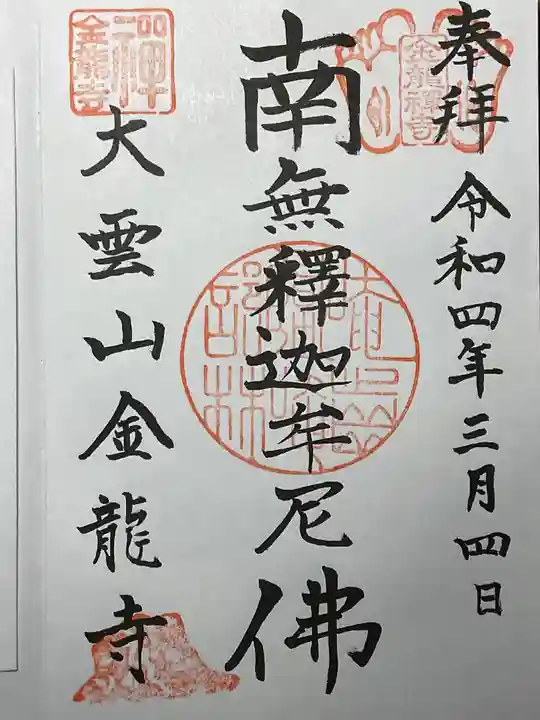 奉拜
令和四年三月四日
金龍禅寺
南無釋迦牟尼佛
大雲山金龍寺
禅
金龍寺